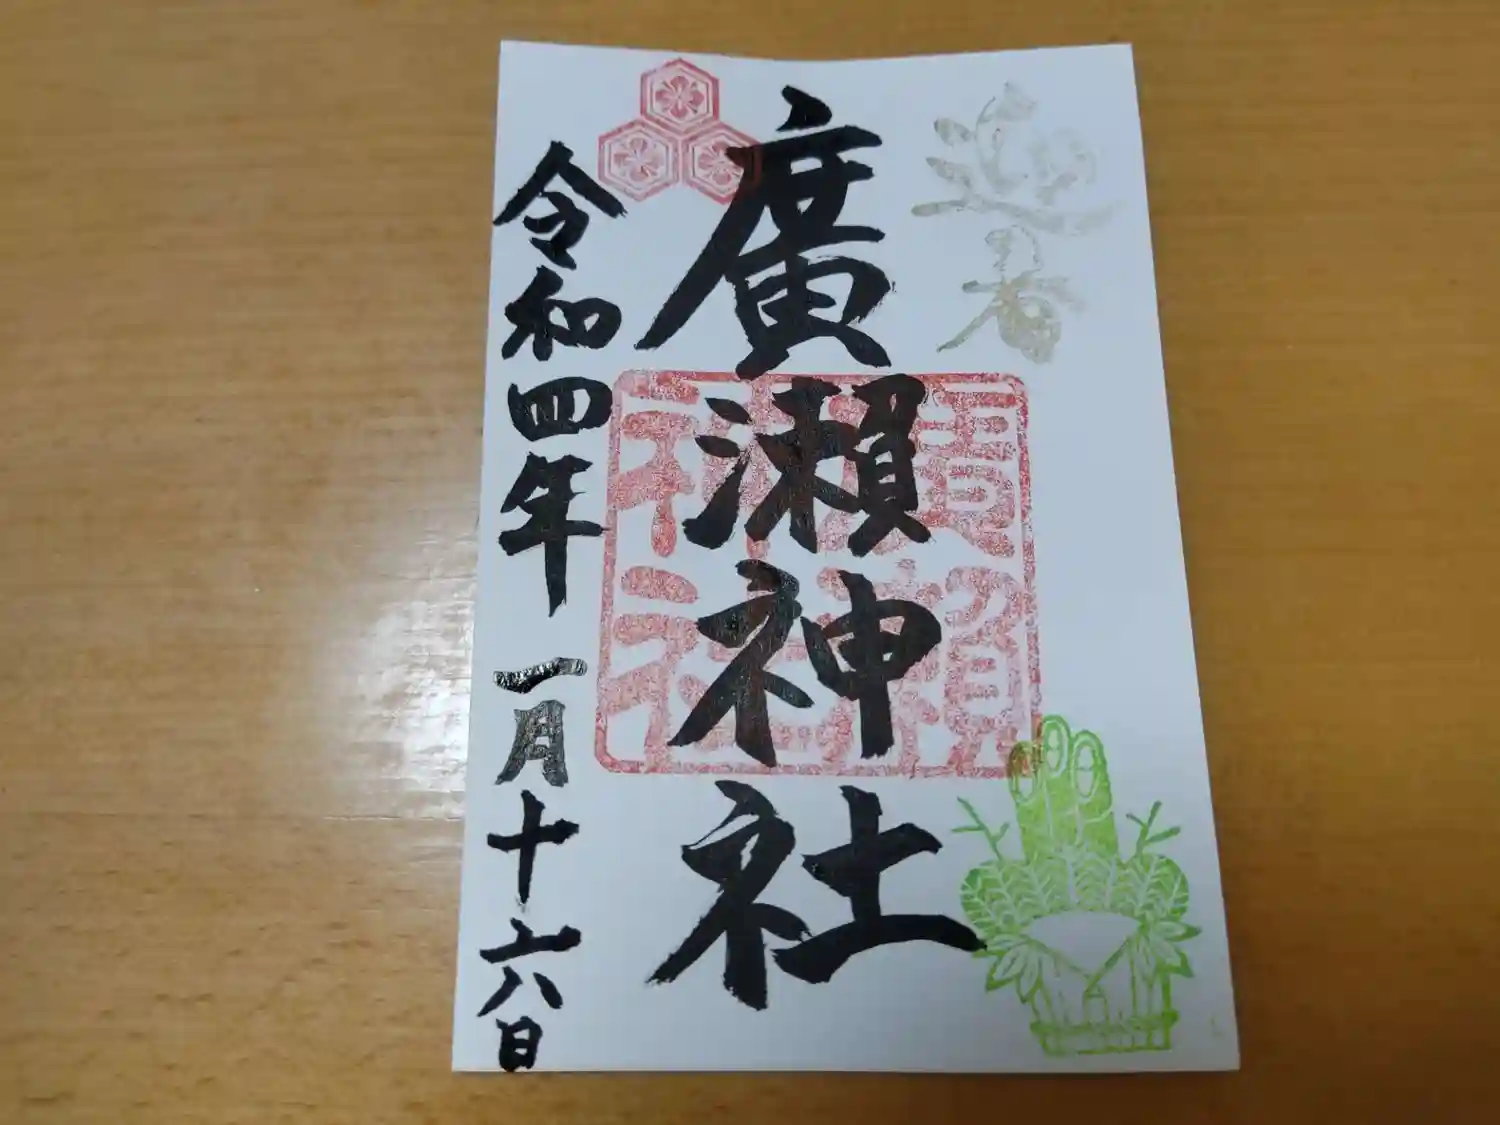 迎春
廣瀬神社
廣瀬神社
令和四年 一月十六日